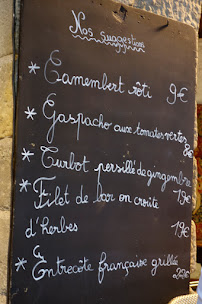 Nos suggestions
* Camembert rôti 9€
* Gaspacho aux tomates vertes
8€
* Turbot persillé de gingembre
* Filet de bar en croûte 19€
d'herbes 19€
* Entrecôte française grillée